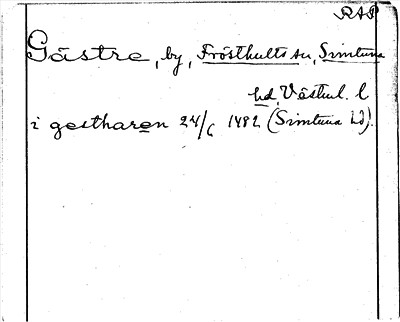 RAP
Gästre, by, Frösthults sn, Simtuna
hd, Västml. l
i gestharen 24/6 1482 (Simtuna hd).